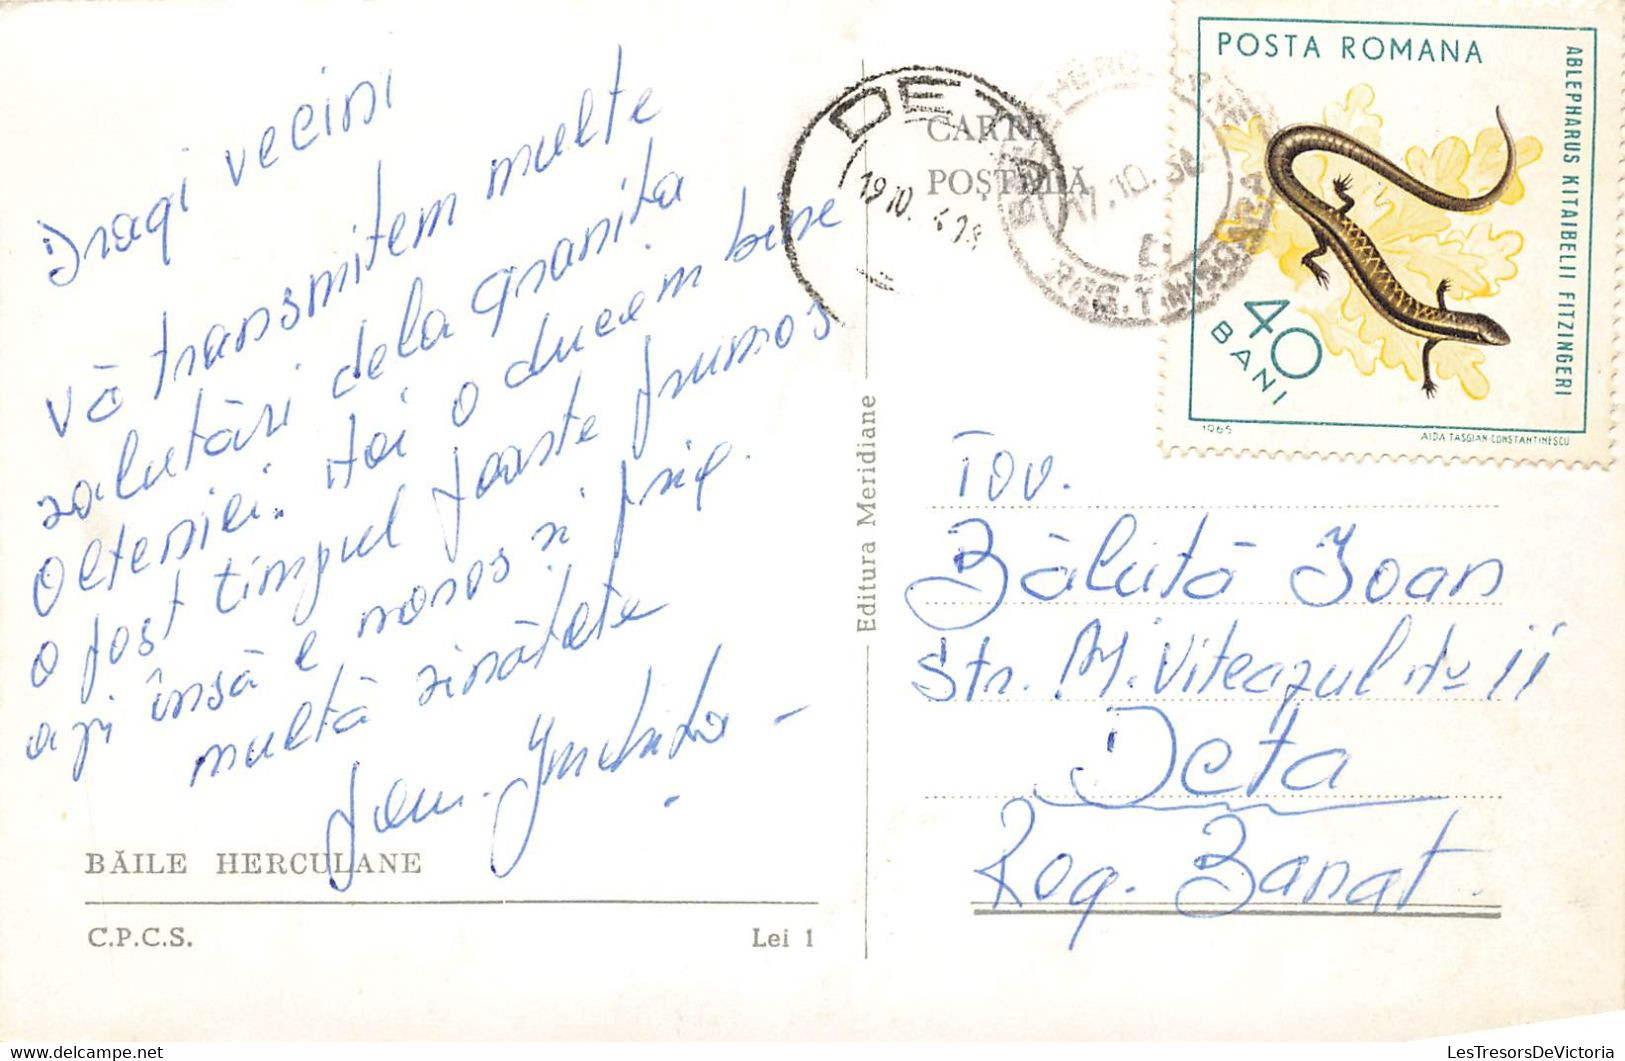 Dragi vecini
Vă transmitem multe
salutări dela granita
Olteniei. Noi o ducem bine
o fost timpul foarte frumos
azi însă e noros si frig.
multă sinătate
Fam.
BĂILE HERCULANE
C.P.C.S.
Lei 1
Editura Meridiane
CARTE
POȘTALĂ
DETA
19 10.
17.10.
REG.
POSTA ROMANA
ABLEPHARUS KITAIBELII FITZINGERI
40
BANI
1965
AIDA TASGIAN-CONSTANTINESCU
Tov.
Băluță Ioan
Str. M. Viteazul No 11
Deta
Reg. Banat.
LesTresorsDeVictoria